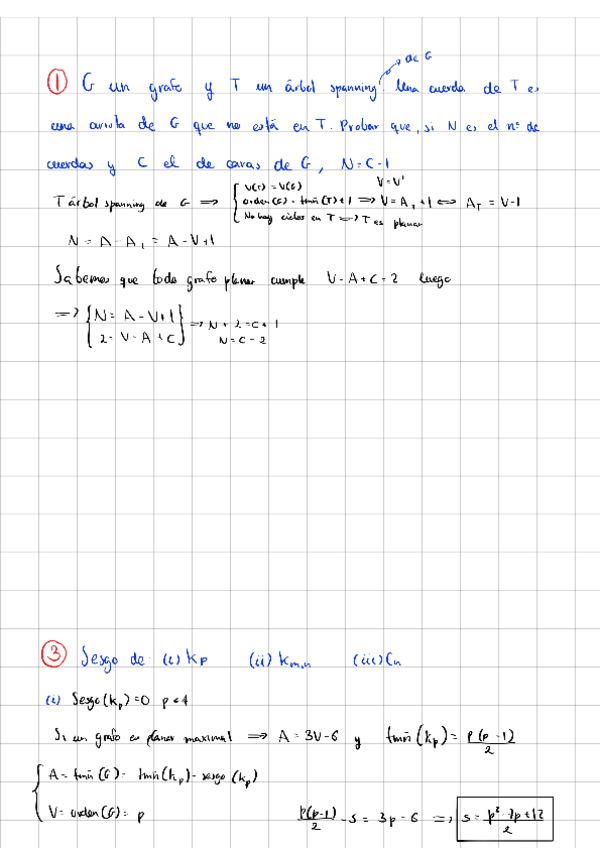 de G
① G un grafo y T un árbol spanning. Una cuerda de T es
una arista de G que no está en T. Probar que, si N es el nº de
cuerdas y C el de caras de G, N = C-1
T árbol spanning de G ⟹ { V(T) = V(G)    V = V'
orden(G) = tmñ(T)+1 ⟹ V = A_T + 1 ⟺ A_T = V-1
No hay ciclos en T ⟹ T es planar
N = A - A_T = A - V + 1
Sabemos que todo grafo planar cumple V - A + C = 2 luego
⟹ { N = A - V + 1
2 = V - A + C } ⟹ N + 2 = C + 1
N = C - 2
③ Sesgo de: (i) Kp (ii) Km,n (iii) Cn
(i) Sesgo(Kp) = 0 p < 4
Si un grafo es planar maximal ⟹ A = 3V - 6 y tmñ(Kp) = p(p-1)/2
{ A = tmñ(G) = tmñ(Kp) - sesgo(Kp)
V = orden(G) = p    p(p-1)/2 - s = 3p - 6 ⟹ s = p² - 7p + 12/2